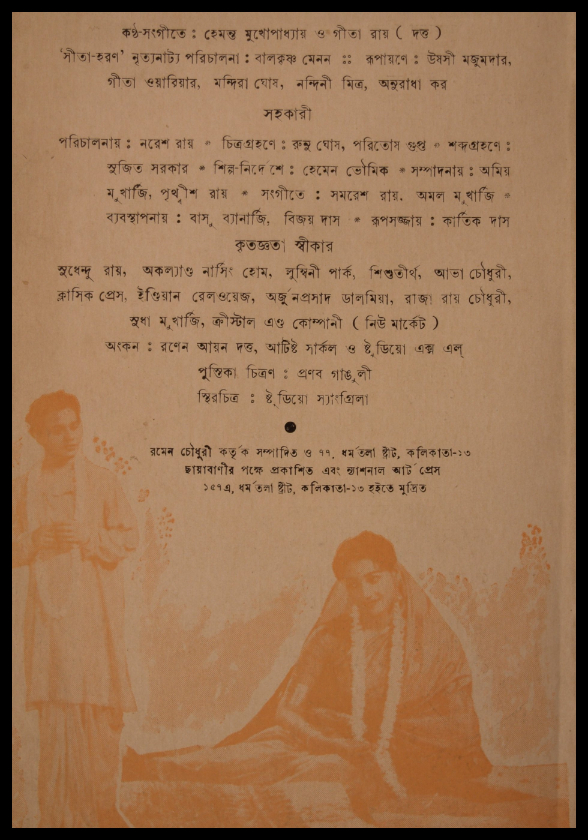 কণ্ঠ-সংগীতে : হেমন্ত মুখোপাধ্যায় ও গীতা রায় ( দত্ত )
'সীতা-হরণ' নৃত্যনাট্য পরিচালনা : বালকৃষ্ণ মেনন :: রূপায়ণে : উষসী মজুমদার,
গীতা ওয়ারিয়ার, মন্দিরা ঘোষ, নন্দিনী মিত্র, অনুরাধা কর
সহকারী
পরিচালনায় : নরেশ রায় * চিত্রগ্রহণে : রুনু ঘোষ, পরিতোষ গুপ্ত * শব্দগ্রহণে :
সুজিত সরকার * শিল্প-নির্দেশে : হেমেন ভৌমিক * সম্পাদনায় : অমিয়
মুখার্জি, পৃথ্বীশ রায় * সংগীতে : সমরেশ রায়, অমল মুখার্জি *
ব্যবস্থাপনায় : বাসু ব্যানার্জি, বিজয় দাস * রূপসজ্জায় : কার্তিক দাস
কৃতজ্ঞতা স্বীকার
সুধেন্দু রায়, অকল্যাণ্ড নার্সিং হোম, লুম্বিনী পার্ক, শিশুতীর্থ, আভা চৌধুরী,
ক্লাসিক প্রেস, ইণ্ডিয়ান রেলওয়েজ, অর্জুনপ্রসাদ ডালমিয়া, রাজা রায় চৌধুরী,
সুধা মুখার্জি, ক্রীস্টাল এণ্ড কোম্পানী ( নিউ মার্কেট )
অংকন : রণেন আয়ন দত্ত, আর্টিষ্ট সার্কল ও ষ্টুডিয়ো এক্স এল্
পুস্তিকা চিত্রণ : প্রণব গাঙুলী
স্থিরচিত্র : ষ্টুডিয়ো স্যাংগ্রিলা
রমেন চৌধুরী কর্তৃক সম্পাদিত ও ৭৭, ধর্মতলা ষ্ট্রীট, কলিকাতা-১৩
ছায়াবাণীর পক্ষে প্রকাশিত এবং ন্যাশনাল আর্ট প্রেস
১৫৭এ, ধর্মতলা ষ্ট্রীট, কলিকাতা-১৩ হইতে মুদ্রিত